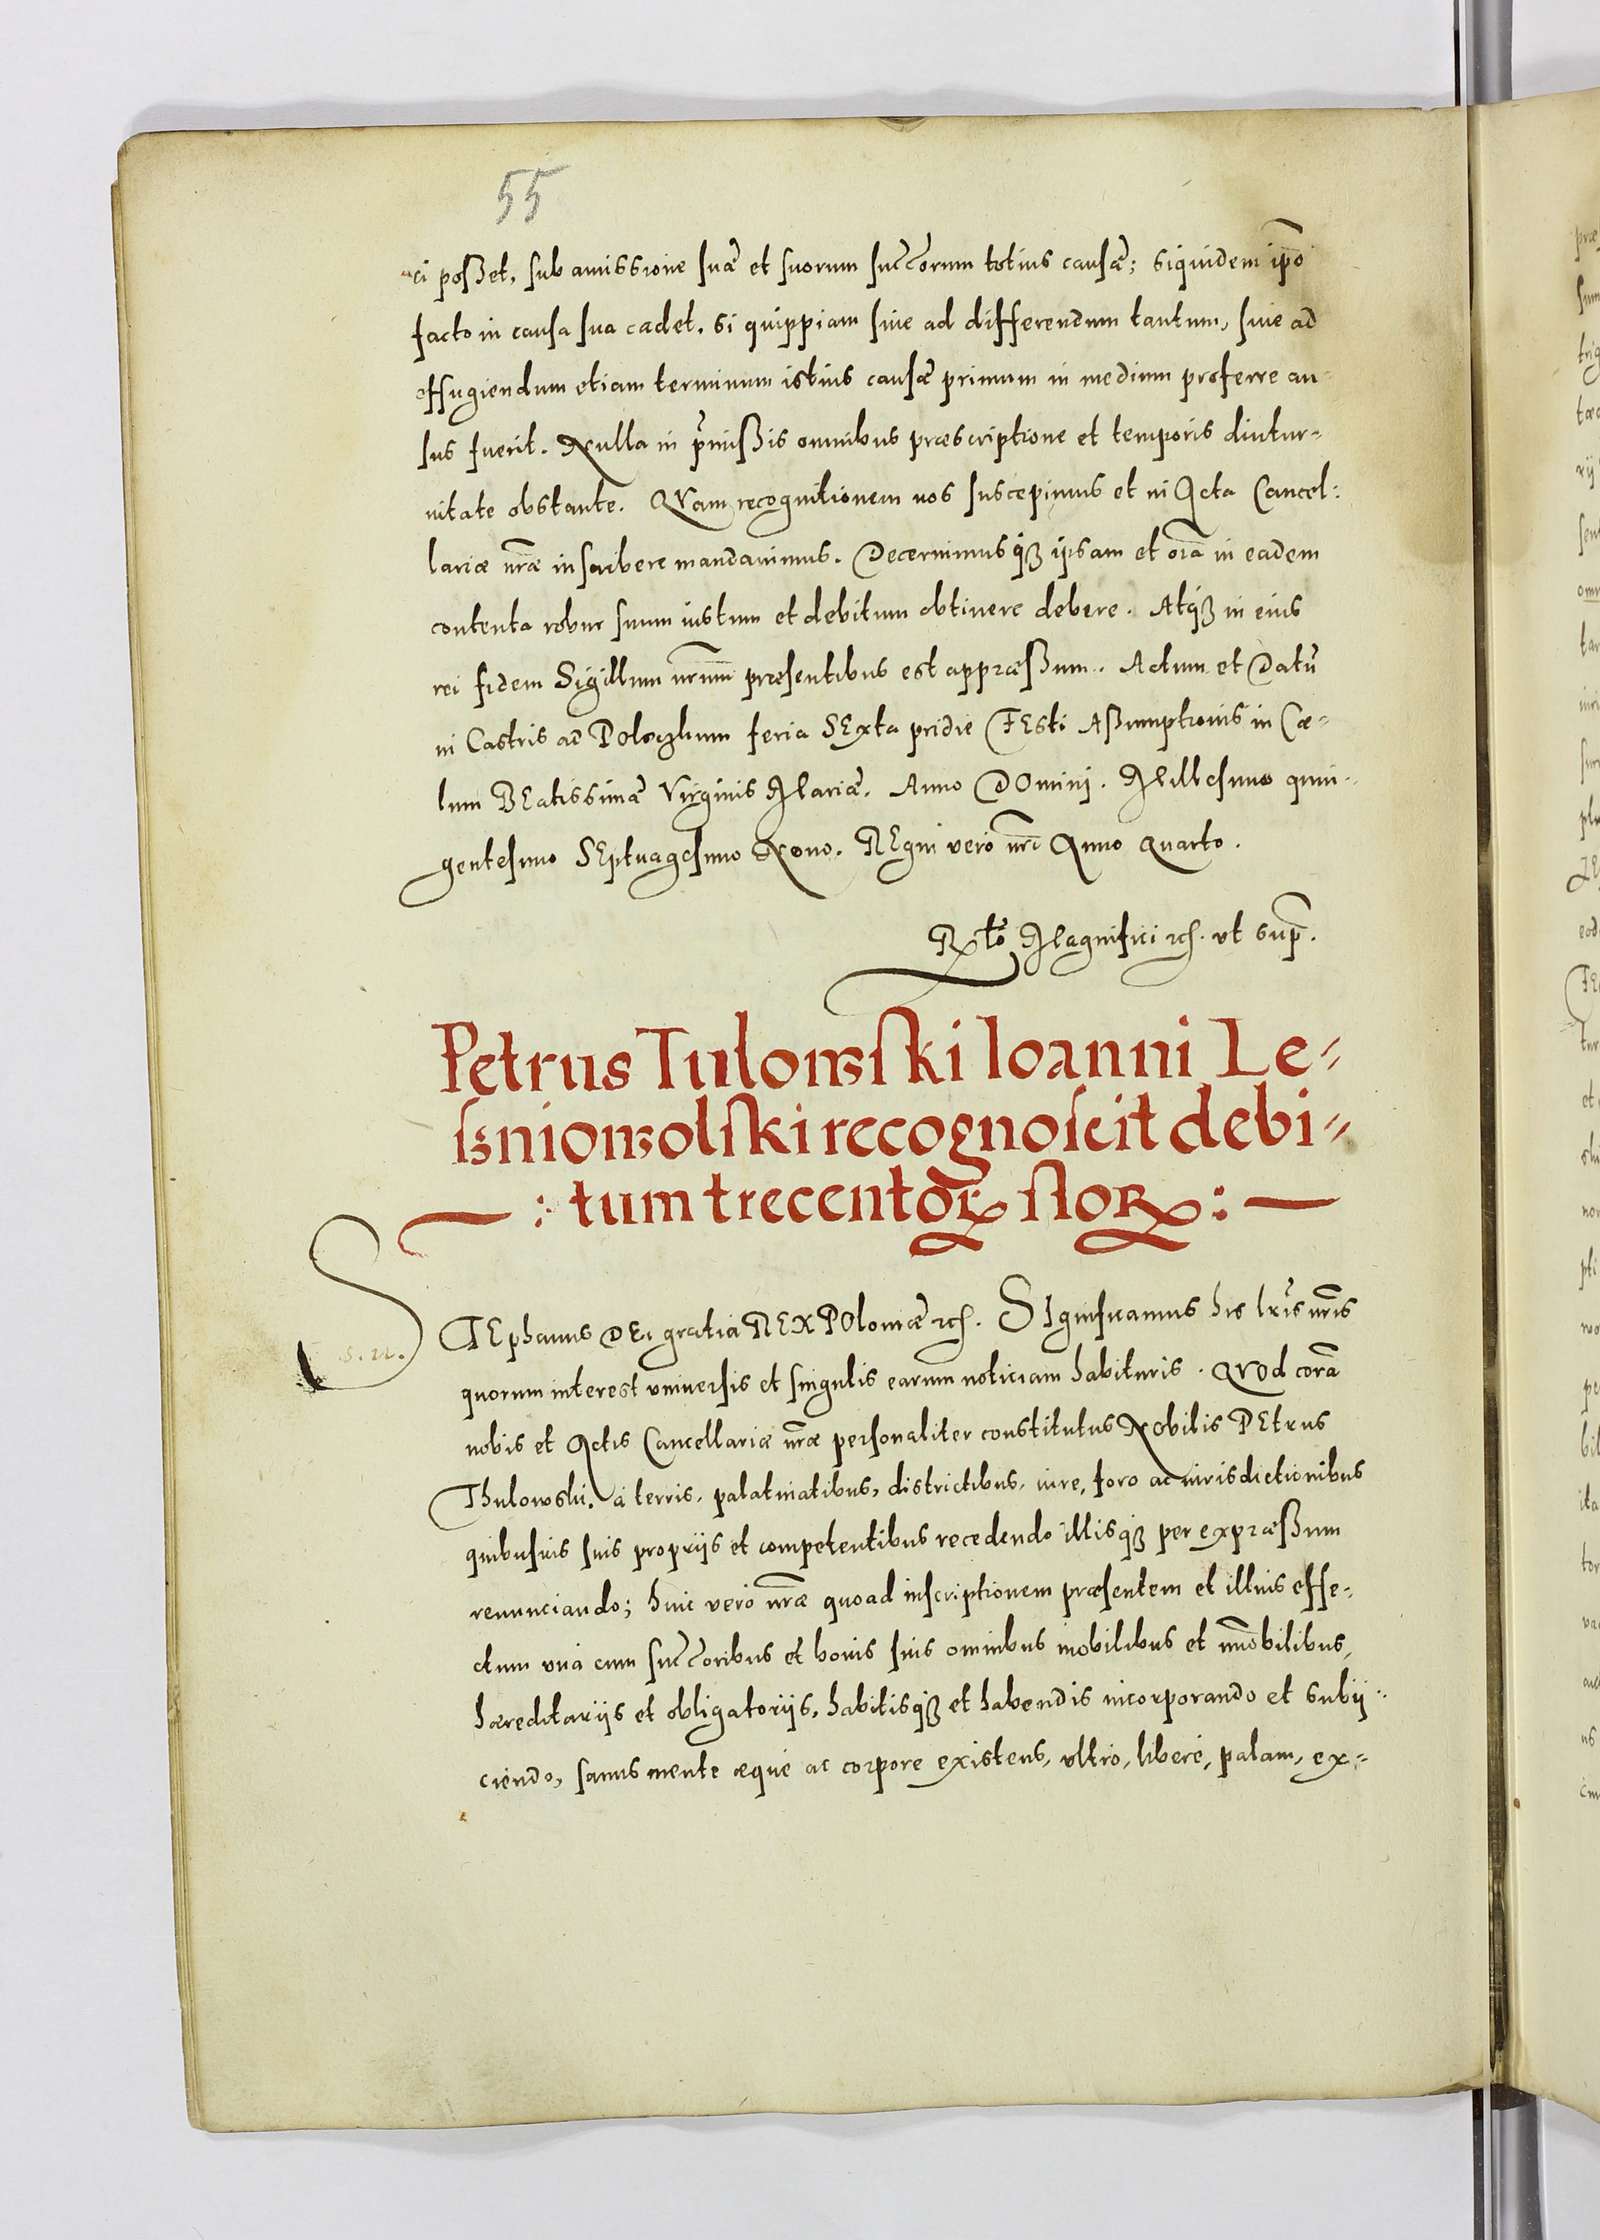 55
ci posset, sub amissione suæ et suorum succ̃orum totius causæ; siquidem ip̃o
facto in causa sua cadet. Si quippiam siue ad differendum tantum, siue ad
effugiendum etiam terminum istius causæ primum in medium proferre au-
sus fuerit. Nulla in p̃missis omnibus præscriptione et temporis diutur-
nitate obstante. QVam recognitionem nos suscepimus et in Acta Cancel-
lariæ nr̃æ inscribere mandauimus. Decernimusq3 ipsam et oĩa in eadem
contenta robur suum iustum et debitum obtinere debere. Atq3 in eius
rei fidem Sigillum nr̃um præsentibus est appræssum. Actum et Datũ
in Castris ad Poloczkum feria SExta pridie FEsti Assumptionis in Cæ-
lum BEatissimæ Virginis Mariæ. Anno DOmini. Millesimo quin-
gentesimo SEptuagesimo Nono. REgni vero nr̃i Anno Quarto.
R̃tõ Magnifici etc. vt sup̃.
Petrus Tulowski Ioanni Le-
sniowolski recognoscit debi-
: tum trecentorꝝ florꝝ :
STEphanus DEi gratia REX POloniæ etc. SIgnificamus his lr̃is nr̃is
s. n.
quorum interest vniuersis et singulis earum noticiam habituris. QVOd corã
nobis et Actis Cancellariæ nr̃æ personaliter constitutus Nobilis PEtrus
Thulowski. à terris, palatinatibus, districtibus, iure, foro ac iurisdictionibus
quibusuis suis proprijs et competentibus recedendo illisq3 per expræssum
renunciando; huic vero nr̃æ quoad inscriptionem præsentem et illius effe-
ctum vnà cum succ̃oribus et bonis suis omnibus mobilibus et im̃obilibus,
hæreditarijs et obligatorijs, habitisq3 et habendis incorporando et subij-
ciendo, sanus mente æque ac corpore existens, vltro, liberè, palam, ex-